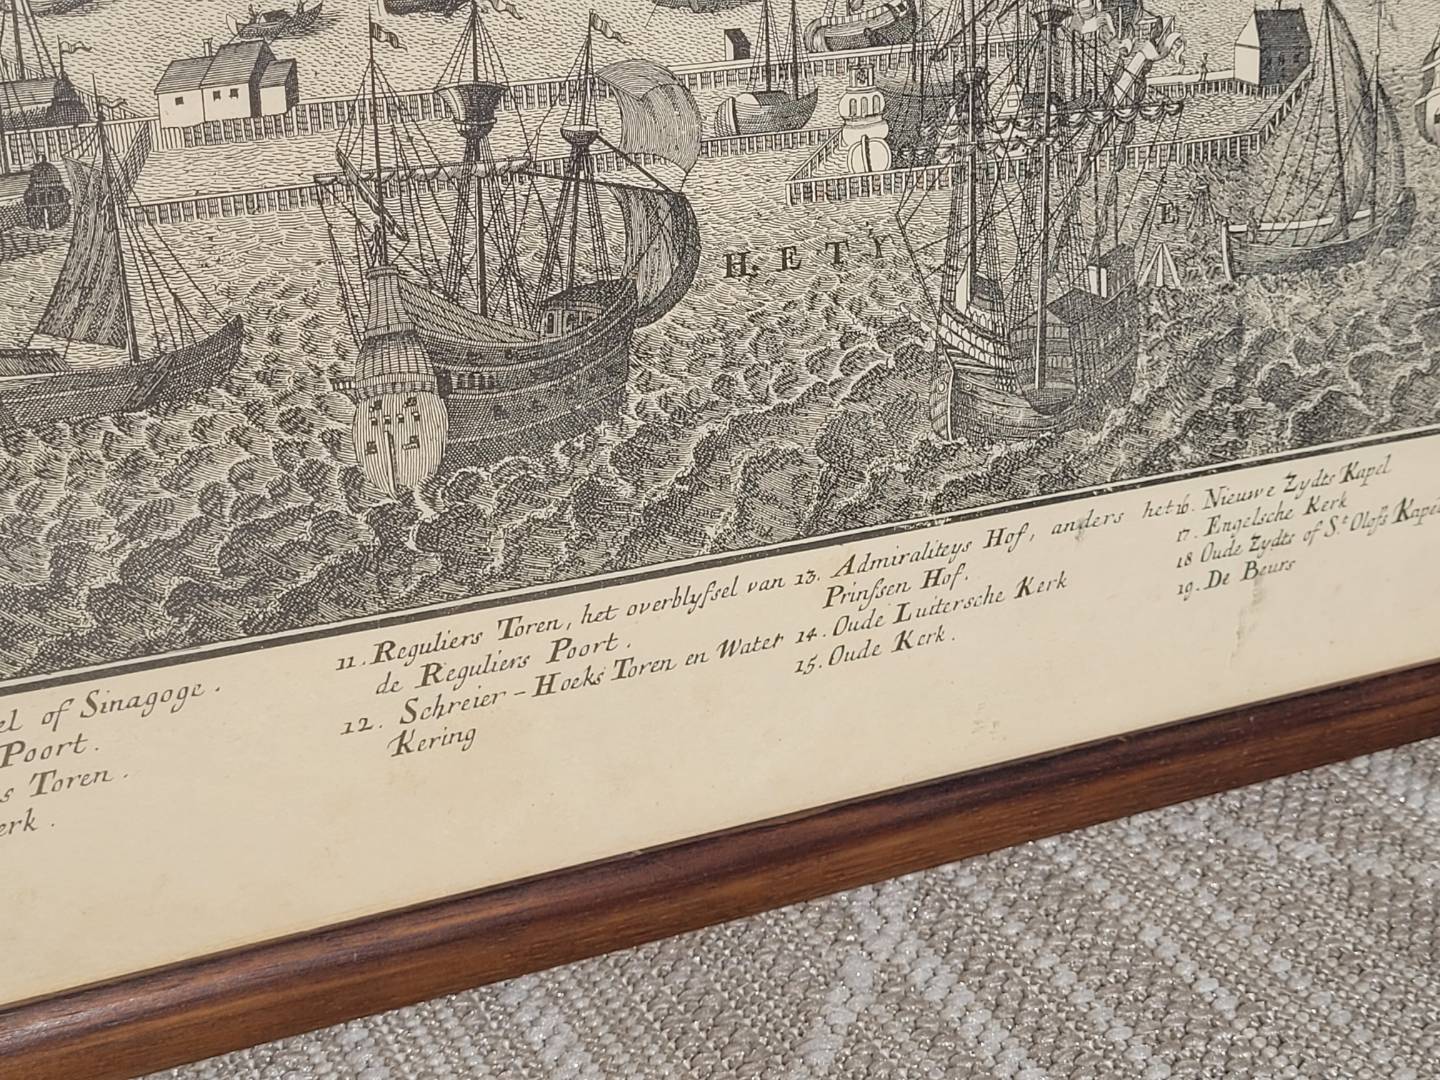 H. E T Y
E
el of Sinagoge.
Poort.
s Toren.
erk.
11. Reguliers Toren, het overblyfsel van
de Reguliers Poort.
12. Schreier-Hoeks Toren en Water
Kering
13. Admiraliteys Hof, anders het
Prinssen Hof.
14. Oude Luitersche Kerk
15. Oude Kerk.
16. Nieuwe Zydts Kapel
17. Engelsche Kerk
18 Oude Zydts of St Olofs Kapel
19. De Beurs